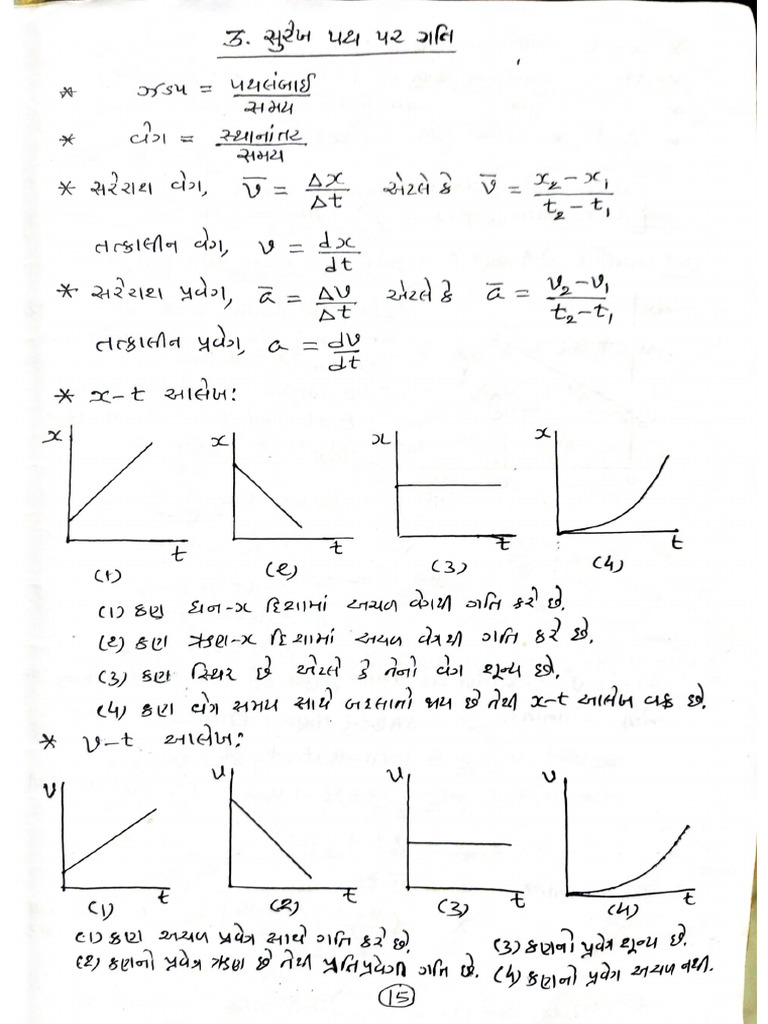 3. સુરેખ પથ પર ગતિ
* ઝડપ = પથલંબાઈ / સમય
* વેગ = સ્થાનાંતર / સમય
* સરેરાશ વેગ, v̅ = Δx / Δt એટલે કે v̅ = x₂ - x₁ / t₂ - t₁
તત્કાલીન વેગ, v = dx / dt
* સરેરાશ પ્રવેગ, a̅ = Δv / Δt એટલે કે a̅ = v₂ - v₁ / t₂ - t₁
તત્કાલીન પ્રવેગ, a = dv / dt
* x-t આલેખ:
x x x x
t t t t
(૧) (૨) (૩) (૪)
(૧) કણ ધન-x દિશામાં અચળ વેગથી ગતિ કરે છે.
(૨) કણ ઋણ-x દિશામાં અચળ વેગથી ગતિ કરે છે.
(૩) કણ સ્થિર છે એટલે કે તેનો વેગ શૂન્ય છે.
(૪) કણ વેગ સમય સાથે બદલાતો જાય છે તેથી x-t આલેખ વક્ર છે.
* v-t આલેખ:
v v v v
t t t t
(૧) (૨) (૩) (૪)
(૧) કણ અચળ પ્રવેગ સાથે ગતિ કરે છે. (૩) કણનો પ્રવેગ શૂન્ય છે.
(૨) કણનો પ્રવેગ ઋણ છે તેથી પ્રતિપ્રવેગી ગતિ છે. (૪) કણનો પ્રવેગ અચળ નથી.
15